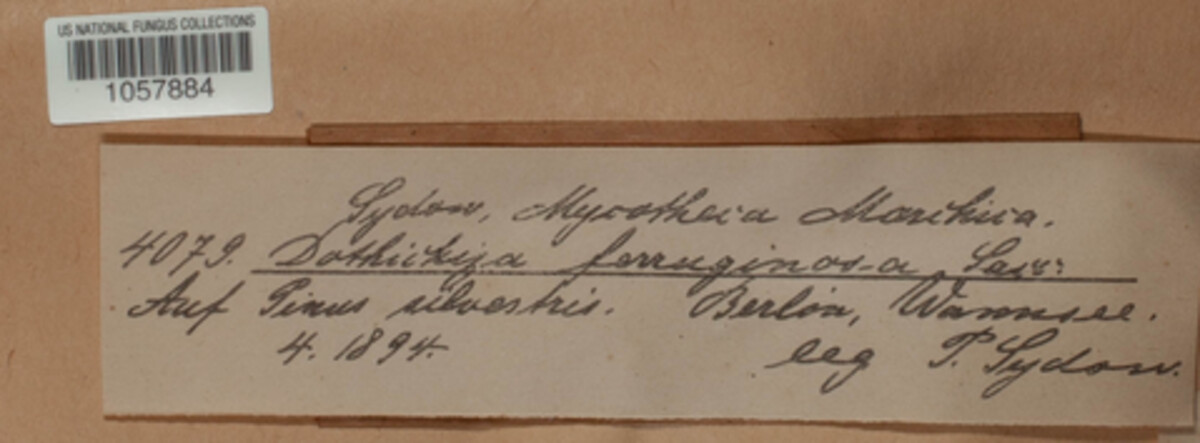 US NATIONAL FUNGUS COLLECTIONS
1057884
Sydow, Mycotheca Marchica.
4079. Dothichiza ferruginosa Sacc.
Auf Pinus silvestris. Berlin, Wannsee.
4. 1894. leg P. Sydow.